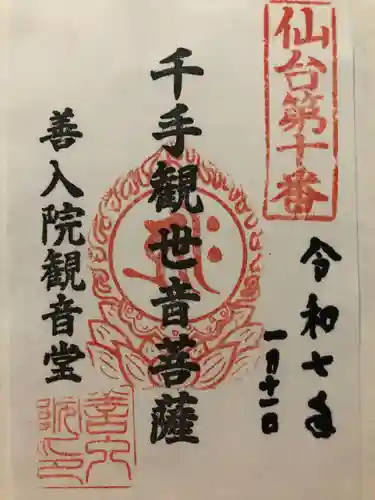 仙台第十番
令和七年
一月十一日
千手観世音菩薩
善入院観音堂
善入院印